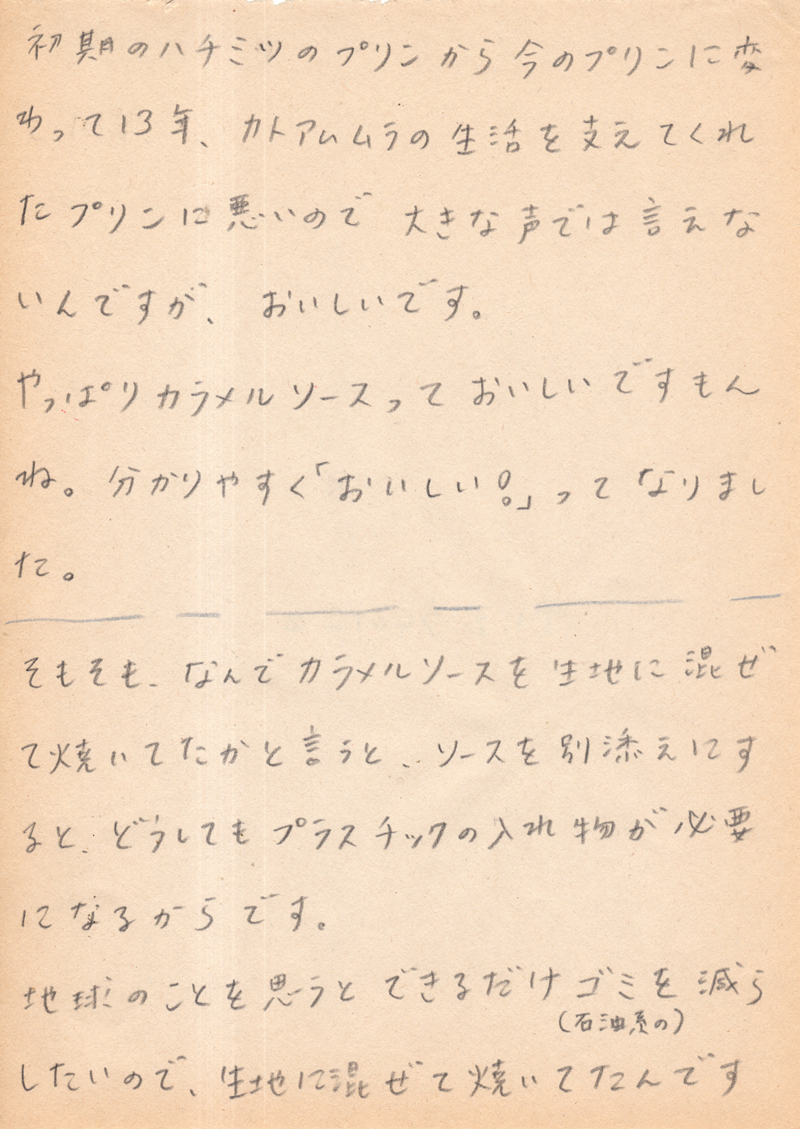 初期のハチミツのプリンから今のプリンに変
わって13年、カトアムムラの生活を支えてくれ
たプリンに悪いので大きな声では言えな
いんですが、おいしいです。
やっぱりカラメルソースっておいしいですもん
ね。分かりやすく「おいしい！」ってなりまし
た。
そもそも、なんでカラメルソースを生地に混ぜ
て焼いてたかと言うと、ソースを別添えにす
ると、どうしてもプラスチックの入れ物が必要
になるからです。
地球のことを思うとできるだけゴミを減ら
(石油系の)
したいので、生地に混ぜて焼いてたんです